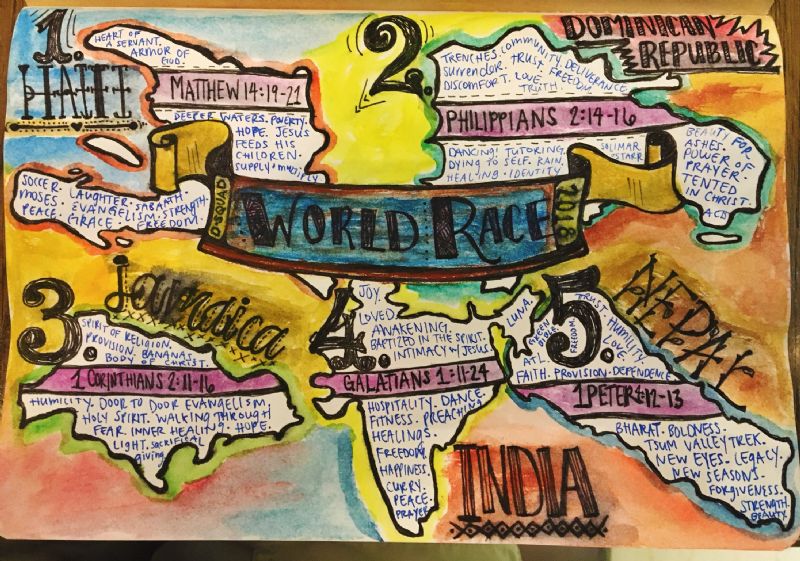 1.
HAITI
HEART OF
A SERVANT.
ARMOR OF
GOD.
MATTHEW 14:19-21
DEEPER WATERS. POVERTY.
HOPE. JESUS
FEEDS HIS
CHILDREN.
SUPPLY + MULTIPLY
SOCCER.
MOSES.
PEACE.
LAUGHTER. SABBATH.
EVANGELISM. STRENGTH.
GRACE. FREEDOM.
2.
DOMINICAN
REPUBLIC
TRENCHES. COMMUNITY. DELIVERANCE.
SURRENDER. TRUST. FREEDOM.
DISCOMFORT. LOVE.
TRUTH.
PHILIPPIANS 2:14-16
DANCING. TUTORING.
DYING TO SELF. RAIN.
HEALING. IDENTITY.
SOLIMAR
STARR
BEAUTY FOR
ASHES.
POWER OF
PRAYER.
TENTED
IN CHRIST.
ACTS
D-SQUAD
WORLD RACE
2018
3.
Jamaica
SPIRIT OF RELIGION.
PROVISION. BANANAS.
BODY OF CHRIST.
1 CORINTHIANS 2:11-16
HUMILITY. DOOR TO DOOR EVANGELISM
HOLY SPIRIT. WALKING THROUGH
FEAR. INNER HEALING. HOPE.
LIGHT. sacrificial
giving.
4.
JOY.
LOVED.
AWAKENING.
BAPTIZED IN THE SPIRIT.
INTIMACY W/ JESUS
LUNA.
GALATIANS 1:11-24
HOSPITALITY. DANCE.
FITNESS. PREACHING
HEALINGS.
FREEDOM.
HAPPINESS.
CURRY.
PEACE.
PRAYER
INDIA
5.
NEPAL
TRUST. HUMILITY.
LOVE.
FREEDOM.
ATL.
FAITH. PROVISION. DEPENDENCE.
1 PETER 4:12-13
BHARAT. BOLDNESS.
TSUM VALLEY TREK.
NEW EYES. LEGACY.
NEW SEASONS.
FORGIVENESS.
STRENGTH.
BEAUTY.